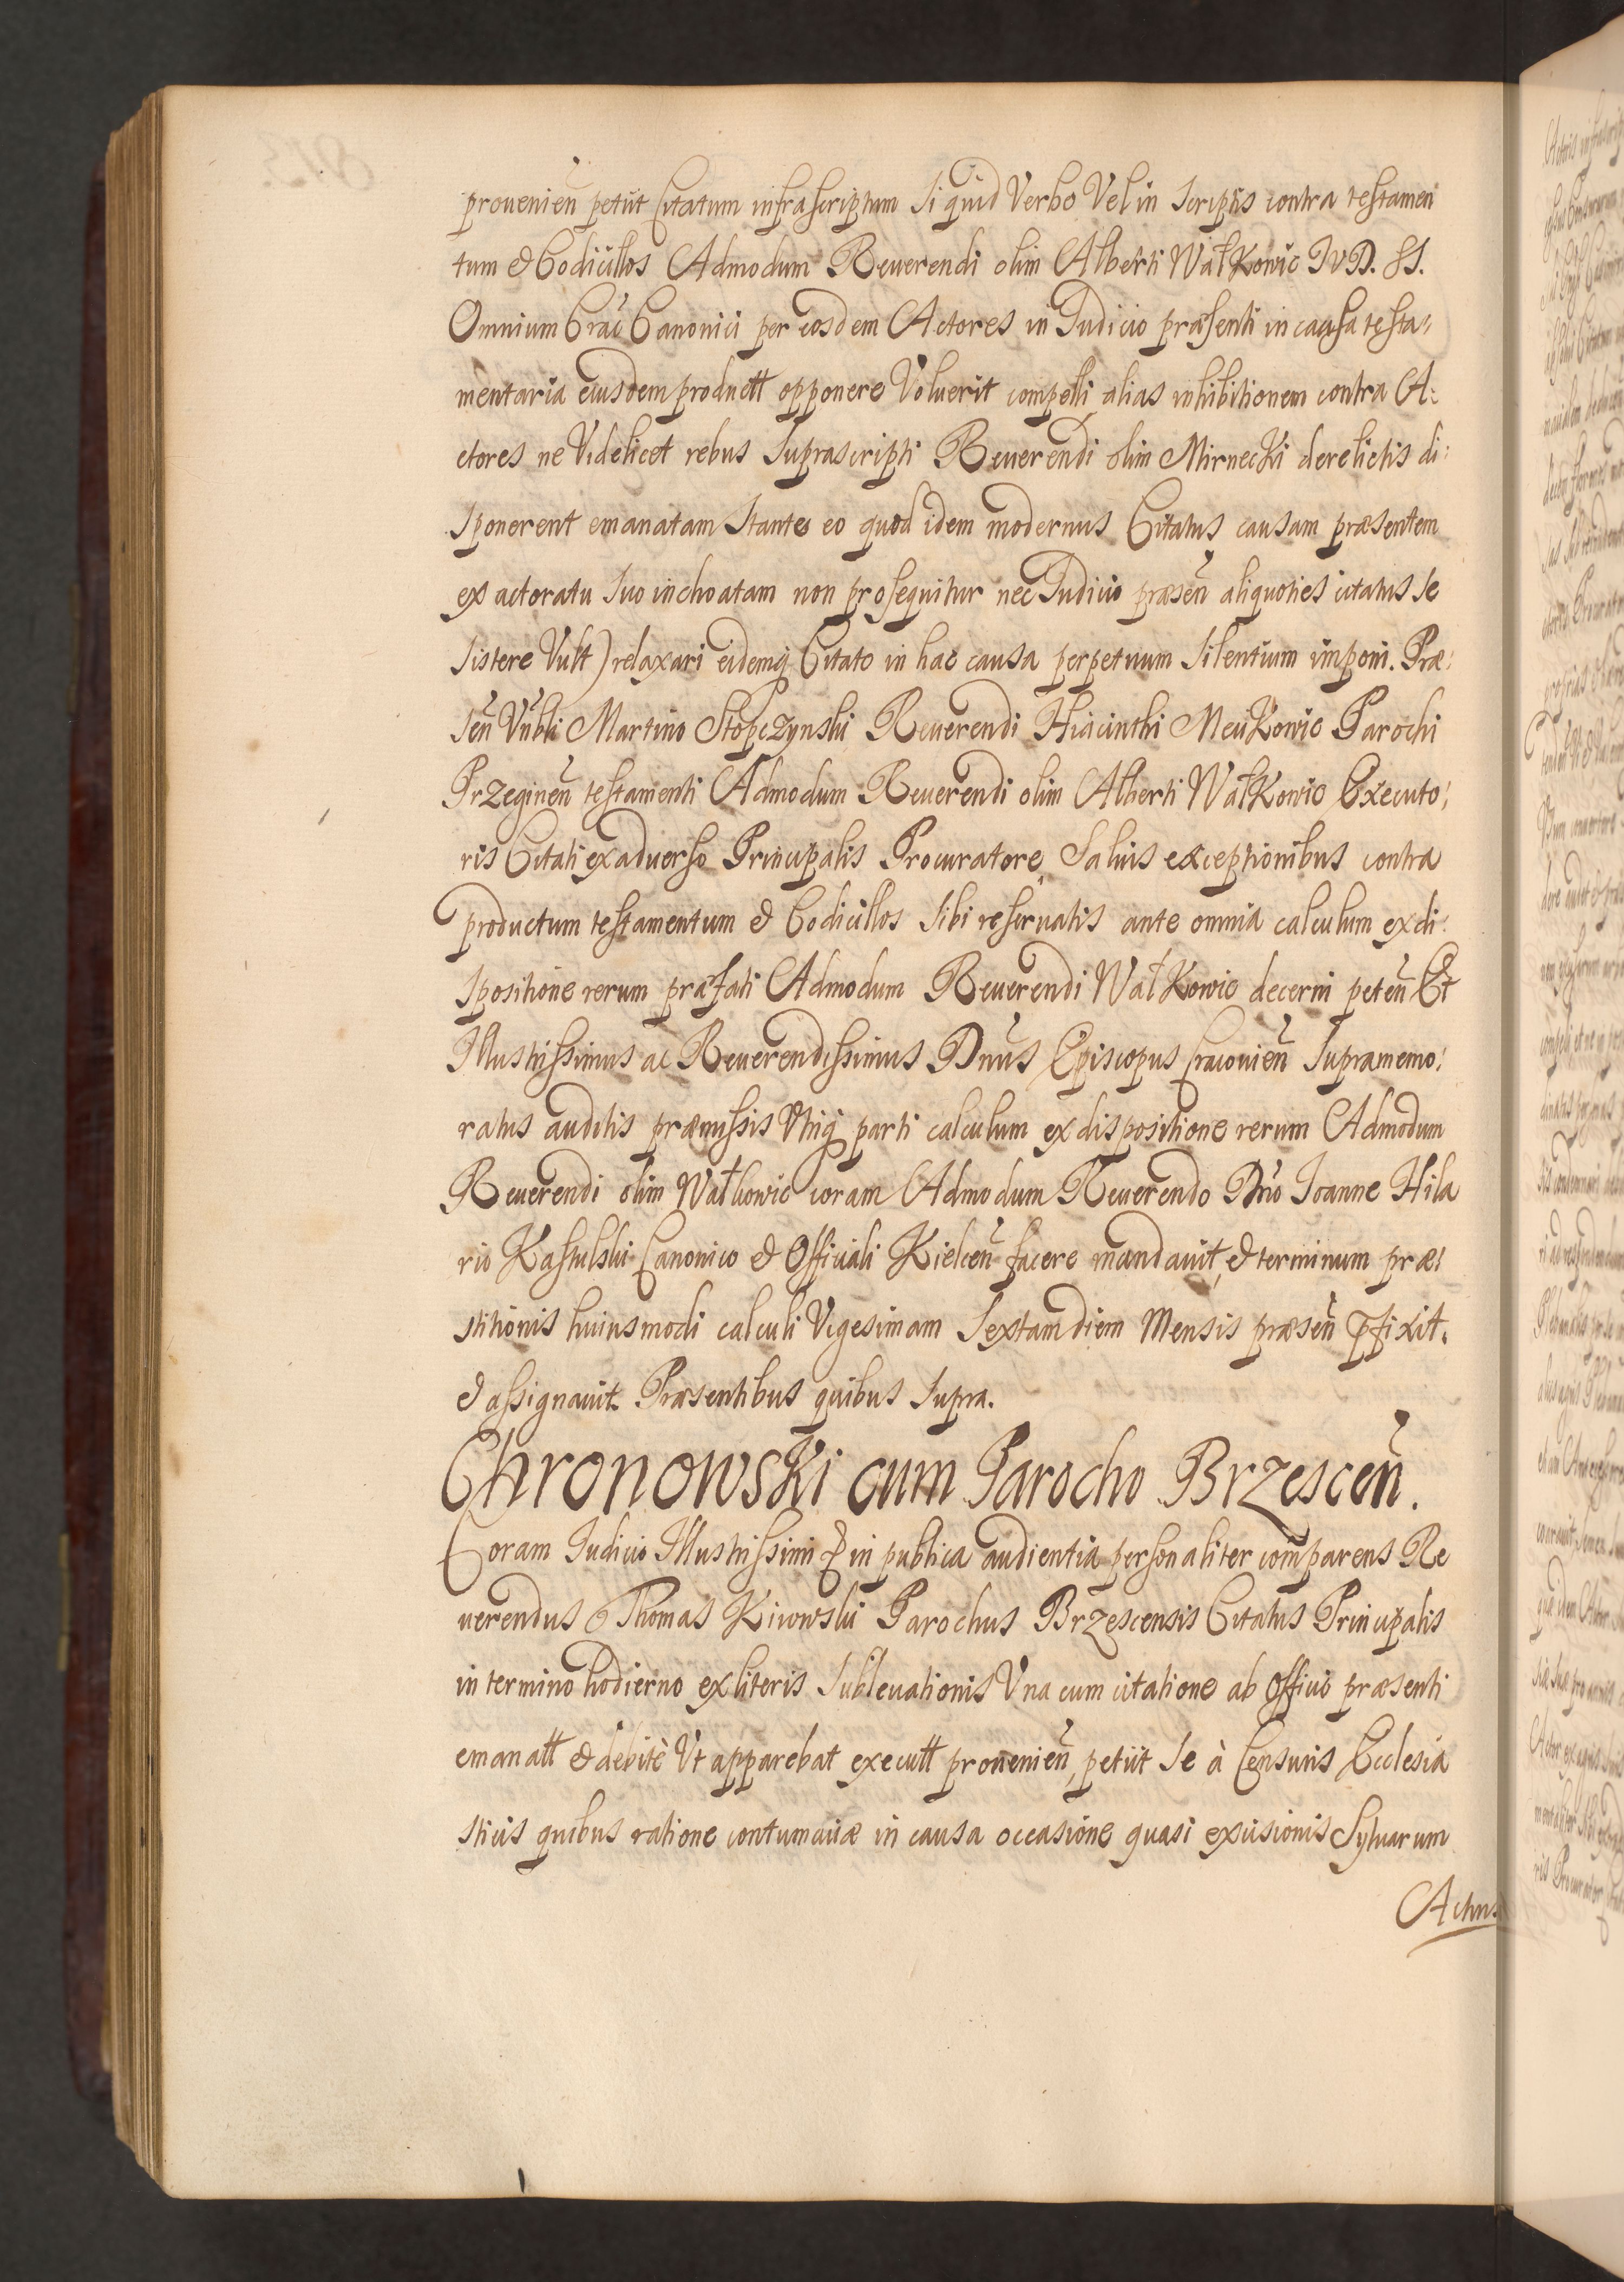 prouenień petiit Citatum infrascriptum si quid Verbo Vel in scriptis contra testamen
tum & Codicillos Admodum Reuerendi olim Alberti Wałkowic IvD. SS.
Omnium Crac̃ Canonici per eosdem Actores in Iudicio præsenti in causa testa:
mentaria eiusdem productt opponere Voluerit compelli alias inhibitionem contra A:
ctores ne Videlicet rebus suprascripti Reuerendi olim Mirnecki derelictis di:
sponerent emanatam stante eo quod idem modernus Citatus causam præsentem
ex actoratu suo inchoatam non prosequitur nec Iudicio præseñ aliquoties citatus se
sistere Vult) relaxari eidemq́ Citato in hac causa perpetuum silentium imponi. Præ:
señ Vñbli Martino Stopczynski Reuerendi Hiacinthi Meukowic Parochi
Przegineñ testamenti Admodum Reuerendi olim Alberti Wałkowic Executo:
ris Citati ex aduerso Principalis Procuratore, Saluis exceptionibus contra
productum testamentum & Codicillos sibi reseruatis ante omnia calculum ex di:
spositione rerum præfati Admodum Reuerendi Wałkowic decerni peteñ Et
Illustrissimus ac Reuerendissimus Dñus Episcopus Cracouieñ supramemo:
ratus auditis præmissis Vtriq́ parti calculum ex dispositione rerum Admodum
Reuerendi olim Wałkowic coram Admodum Reuerendo Dño Ioanne Hila
rio Kastulski Canonico & Officiali Kielceñ facere mandauit, & terminum præ:
stitionis huiusmodi calculi Vigesimam Sextam diem Mensis præseñ p̃fixit.
& assignauit. Præsentibus quibus supra.
Chronowski cum Parocho Brzesceñ.
Coram Iudicio Illustrissimi & in publica audientia personaliter comparens Re
uerendus Thomas Kicowski Parochus Brzescensis Citatus Principalis
in termino hodierno ex literis subleuationis Vna cum citatione ab Officio præsenti
emanatt & debitè Vt apparebat executt prouenieñ, petiit se à Censuris Ecclesia
sticis quibus ratione contumaciæ in causa occasione quasi excisionis Syluarum
Actus